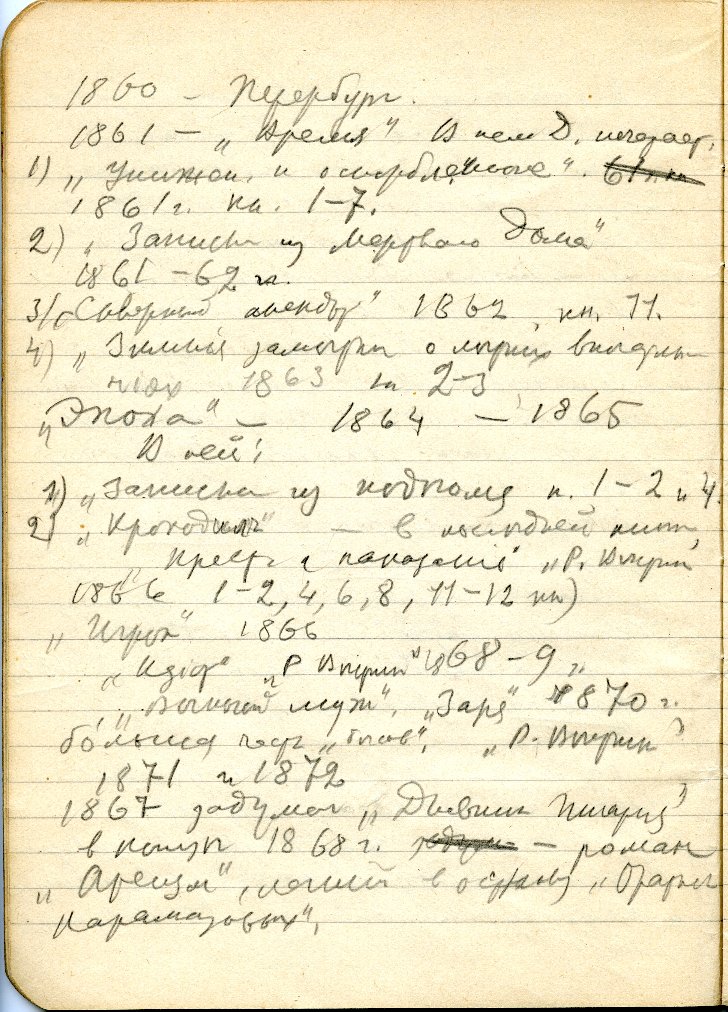 1860 – Петербург.
1861 – „Время" В нем Д. печатает.
1) „Унижен. и оскорбленные". 61
1861 г. кн. 1–7.
2) „Записки из мертвого Дома"
1861–62 гг.
3) „Скверный анекдот" 1862, кн. 11.
4) „Зимнья заметки о летних впечатле-
ниях 1863 кн 2–3
„Эпоха" – 1864 – 1865
В ней:
1) „Записки из подполья к. 1–2 и 4.
2) „Крокодилъ" – в последней книге,
„Прест. и наказание" „Р. Вестник"
1866 1–2, 4, 6, 8, 11–12 кн)
„Игрок" 1866
„Идіот" „Р Вестник" 1868–9 г.
„Вечный муж", „Заря" 1870 г.
большая часть „Бесов", „Р. Вестник"
1871 и 1872
1867 задуман „Дневник Писателя"
в конце 1868 г. – роман
„Атеизм", легший в основу „Братьев
Карамазовых",